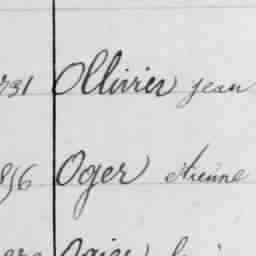 731 Ollivier jean
856 Oger étienne
Ogier